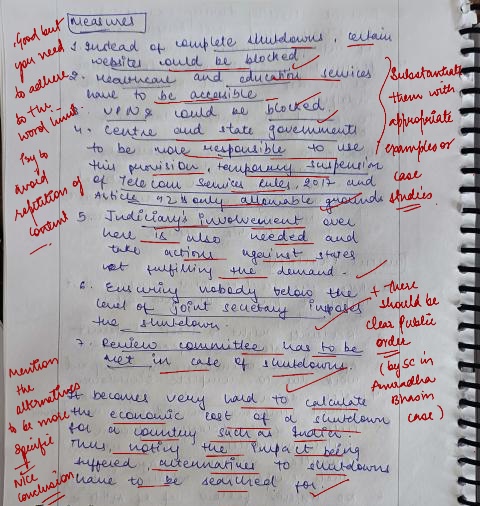 Measures
1. Instead of complete shutdowns, certain
websites could be blocked
2. Healthcare and education services
have to be accessible
3. VPNs could be blocked.
4. Centre and state governments
to be more responsible to use
this provision, temporary suspension
of Telecom Services Rules, 2017 and
Article 19 2 is only allowable grounds
5. Judiciary's involvement over
here is also needed and
take actions against states
not fulfilling the demand.
6. Ensuring nobody below the
level of joint secretary imposes
the shutdown.
7. Review committee has to be
met in case of shutdowns.
It becomes very hard to calculate
the economic cost of a shutdown
for a country such as India.
Thus, noting the impact being
suffered, alternatives to shutdowns
have to be searched for.
Good but
you need
to adhere
to the
word limit
Try to
avoid
repetition of
content
Substantiate
them with
appropriate
examples or
case
studies
+ there
should be
clear public
order
(by SC in
Anuradha
Bhasin
case)
Mention
the
alternatives
to be more
specific
+
Nice
conclusion